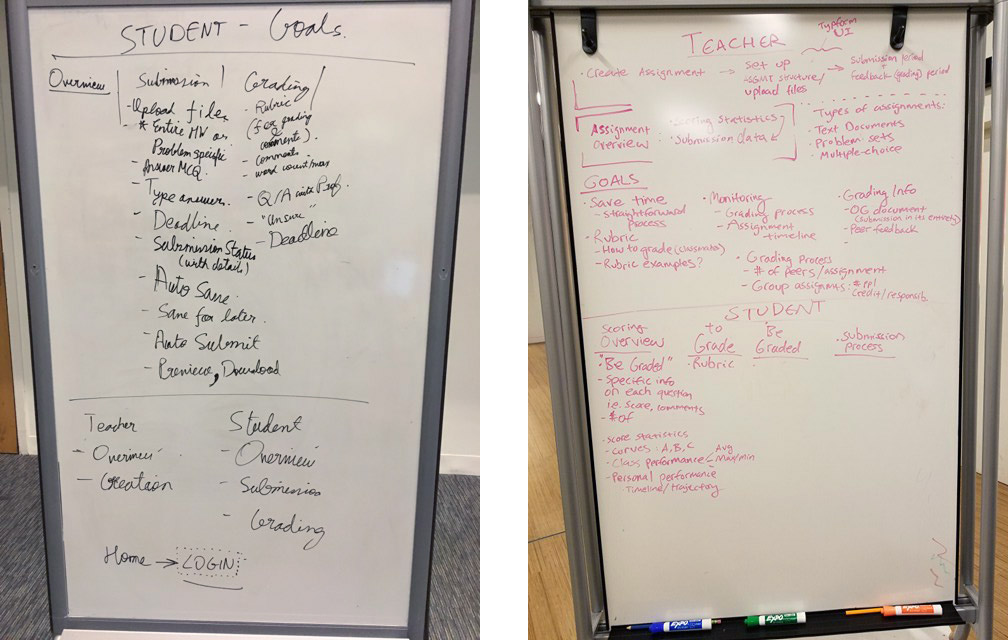 STUDENT - Goals.
Overview
Submission
- Upload files
* Entire HW or
Problem specific
- Answer MCQ.
- Type answer.
- Deadline.
- Submission Status
(with details)
- Auto Save.
- Save for later.
- Auto Submit
- Preview, Download
Grading
- Rubric
(for grading
comments).
- comment
- word count/max
- Q/A with Prof.
- "Unsure"
- Deadline
Teacher
- Overview
- Creation
Student
- Overview
- Submission
- Grading
Home → LOGIN
TEACHER
Typeform
UI
· Create Assignment → set up
structure/
upload files
→ submission period
+
feedback (grading) period
Assignment
overview
· Scoring statistics
· Submission data
Types of assignments:
· Text Documents
· Problem sets
· Multiple-choice
GOALS
· Save time
- straightforward
process
· Rubric
- How to grade
- Rubric examples?
· Monitoring
- Grading process
- Assignment
timeline
· Grading Process
- # of peers/assignment
- Group assignmts:
credit/responsib.
· Grading Info
- OG document
(submission in its entirety)
- Peer feedback
-
STUDENT
Scoring
Overview
· "Be Graded"
- Specific info
on each question
i.e. score, comments
- # of
· score statistics
- curves: A, B, C
- Class performance - Avg
- Max/min
- Personal performance
- Timeline/trajectory
to
Grade
· Rubric
Be
Graded
·
· submission
process